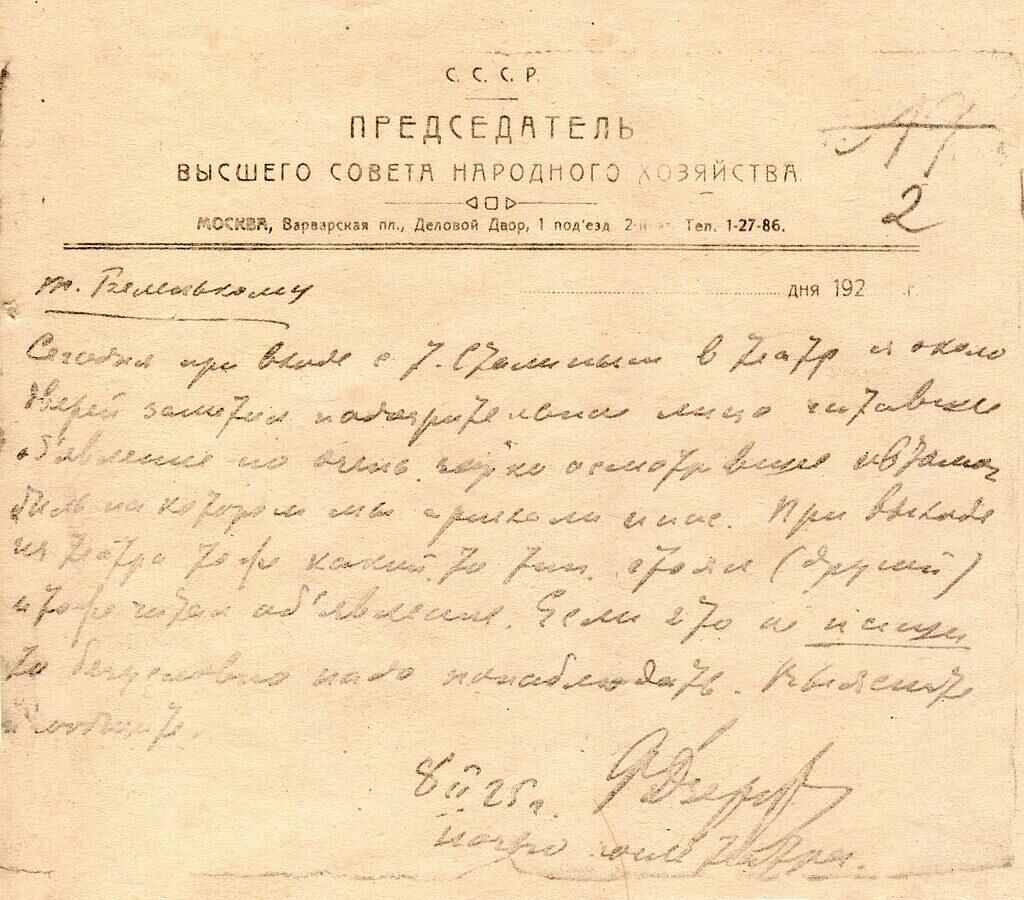 С. С. С. Р.
ПРЕДСЕДАТЕЛЬ
ВЫСШЕГО СОВЕТА НАРОДНОГО ХОЗЯЙСТВА
2
МОСКВА, Варварская пл., Деловой Двор, 1 под'езд 2-й эт. Тел. 1-27-86.
дня 192 г.
т. Беленькому
Сегодня при входе с т. Сталиным в театр я около
дверей заметил подозрительное лицо читавшее
об'явление но очень осмотревшее автомо
биль на котором мы приехали и нас. При выходе
из театра тоже какой то тип стоял (другой)
и тоже читал об'явление. Если это не наши
то безусловно надо понаблюдать. Выясните
и сообщите.
8 II 25 г. ФДзерж
ночью после театра.